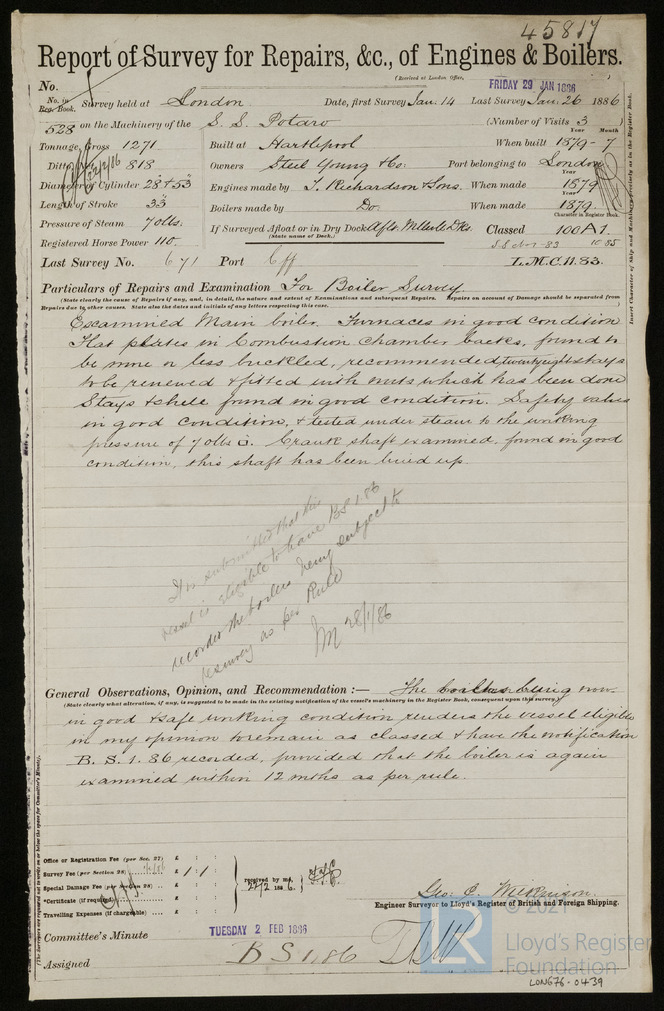 45817
Report of Survey for Repairs, &c., of Engines & Boilers.
(Received at London Office, FRIDAY 29 JAN 1886)
No.
No. in Reg. Book. Survey held at London Date, first Survey Jan: 14 Last Survey Jan. 26 1886
528 on the Machinery of the S. S. Potaro (Number of Visits 3)
Tonnage, Gross 1271 Built at Hartlepool When built 1879-7 Year Month
Ditto 818 Owners Steel Young & Co: Port belonging to London
Diameter of Cylinder 28" & 53" Engines made by T. Richardson & Sons. When made 1879 Year
Length of Stroke 33" Boilers made by Do. When made 1879. Year
Pressure of Steam 70 lbs. If Surveyed Afloat or in Dry Dock Aflt. Millwall Dks. Classed 100 A1. Character in Register Book
(State name of Dock.)
Registered Horse Power 110.
Last Survey No. 671 Port Cff L.M.C. 11.83.
Particulars of Repairs and Examination For Boiler Survey.
(State clearly the cause of Repairs if any, and, in detail, the nature and extent of Examinations and subsequent Repairs. Repairs on account of Damage should be separated from
Repairs due to other causes. State also the dates and initials of any letters respecting this case.
Examined Main boiler. Furnaces in good condition
Flat plates in Combustion chamber backs, found to
be more or less buckled, recommended twenty eight stays
to be renewed & fitted with nuts which has been done
Stays & shell found in good condition. Safety valves
in good condition, & tested under steam to the working
pressure of 70 lbs. Crank shaft examined, found in good
condition, this shaft has been lined up.
It is submitted that this
vessel is eligible to have BS 1.86
recorded the boilers being subject to
resurvey as per Rule
28/1/86
General Observations, Opinion, and Recommendation :— The boilers being now
(State clearly what alteration, if any, is suggested to be made in the existing notification of the vessel's machinery in the Register Book, consequent upon this survey.)
in good & safe working condition renders the vessel eligible
in my opinion to remain as classed & have the notification
B. S. 1. 86 recorded, provided that the boiler is again
examined within 12 mths as per rule.
Office or Registration Fee (per Sec. 27) £ : :
Survey Fee (per Section 28) £ 1 : 1 :
Special Damage Fee (per Section 28) £ : :
*Certificate (if required) £ : :
Travelling Expenses (if chargeable) £ : :
received by me,
27/2 1886.
Engineer Surveyor to Lloyd's Register of British and Foreign Shipping.
Committee's Minute TUESDAY 2 FEB 1886
Assigned B S 1,86
Insert Character of Ship and Machinery precisely as in the Register Book.
(The Surveyors are requested not to write on or below the space for Committee's Minute.)
LR
© 2021
Lloyd's Register
Foundation
LON676-0439